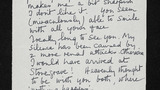 makes me a bit sheepish
I don't like it. You seem
(miraculously) able to smile
with all your
I really long to see you. My
silence has been caused by
a more renal attacks otherwise
I would have arrived at
Stonegrave. Heavenly thought
to be with you both, where